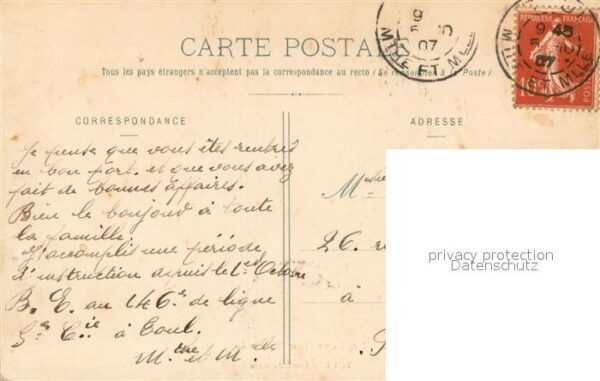 CARTE POSTALE
Tous les pays étrangers n'acceptent pas la correspondance au recto (Se renseigner à la Poste)
CORRESPONDANCE
ADRESSE
Je pense que vous êtes rentrés
en bon port. et que vous avez
fait de bonnes affaires.
Bien le bonjour à toute
la famille.
J'accomplis une période
d'instruction depuis le 1er Octobre
B. E. au 146e de ligne
Cie à Toul.
et M.
26.
à
privacy protection
Datenschutz
REPUBLIQUE FRANÇAISE
9 45
07
10
POSTES
MTHE ET MLLE
07